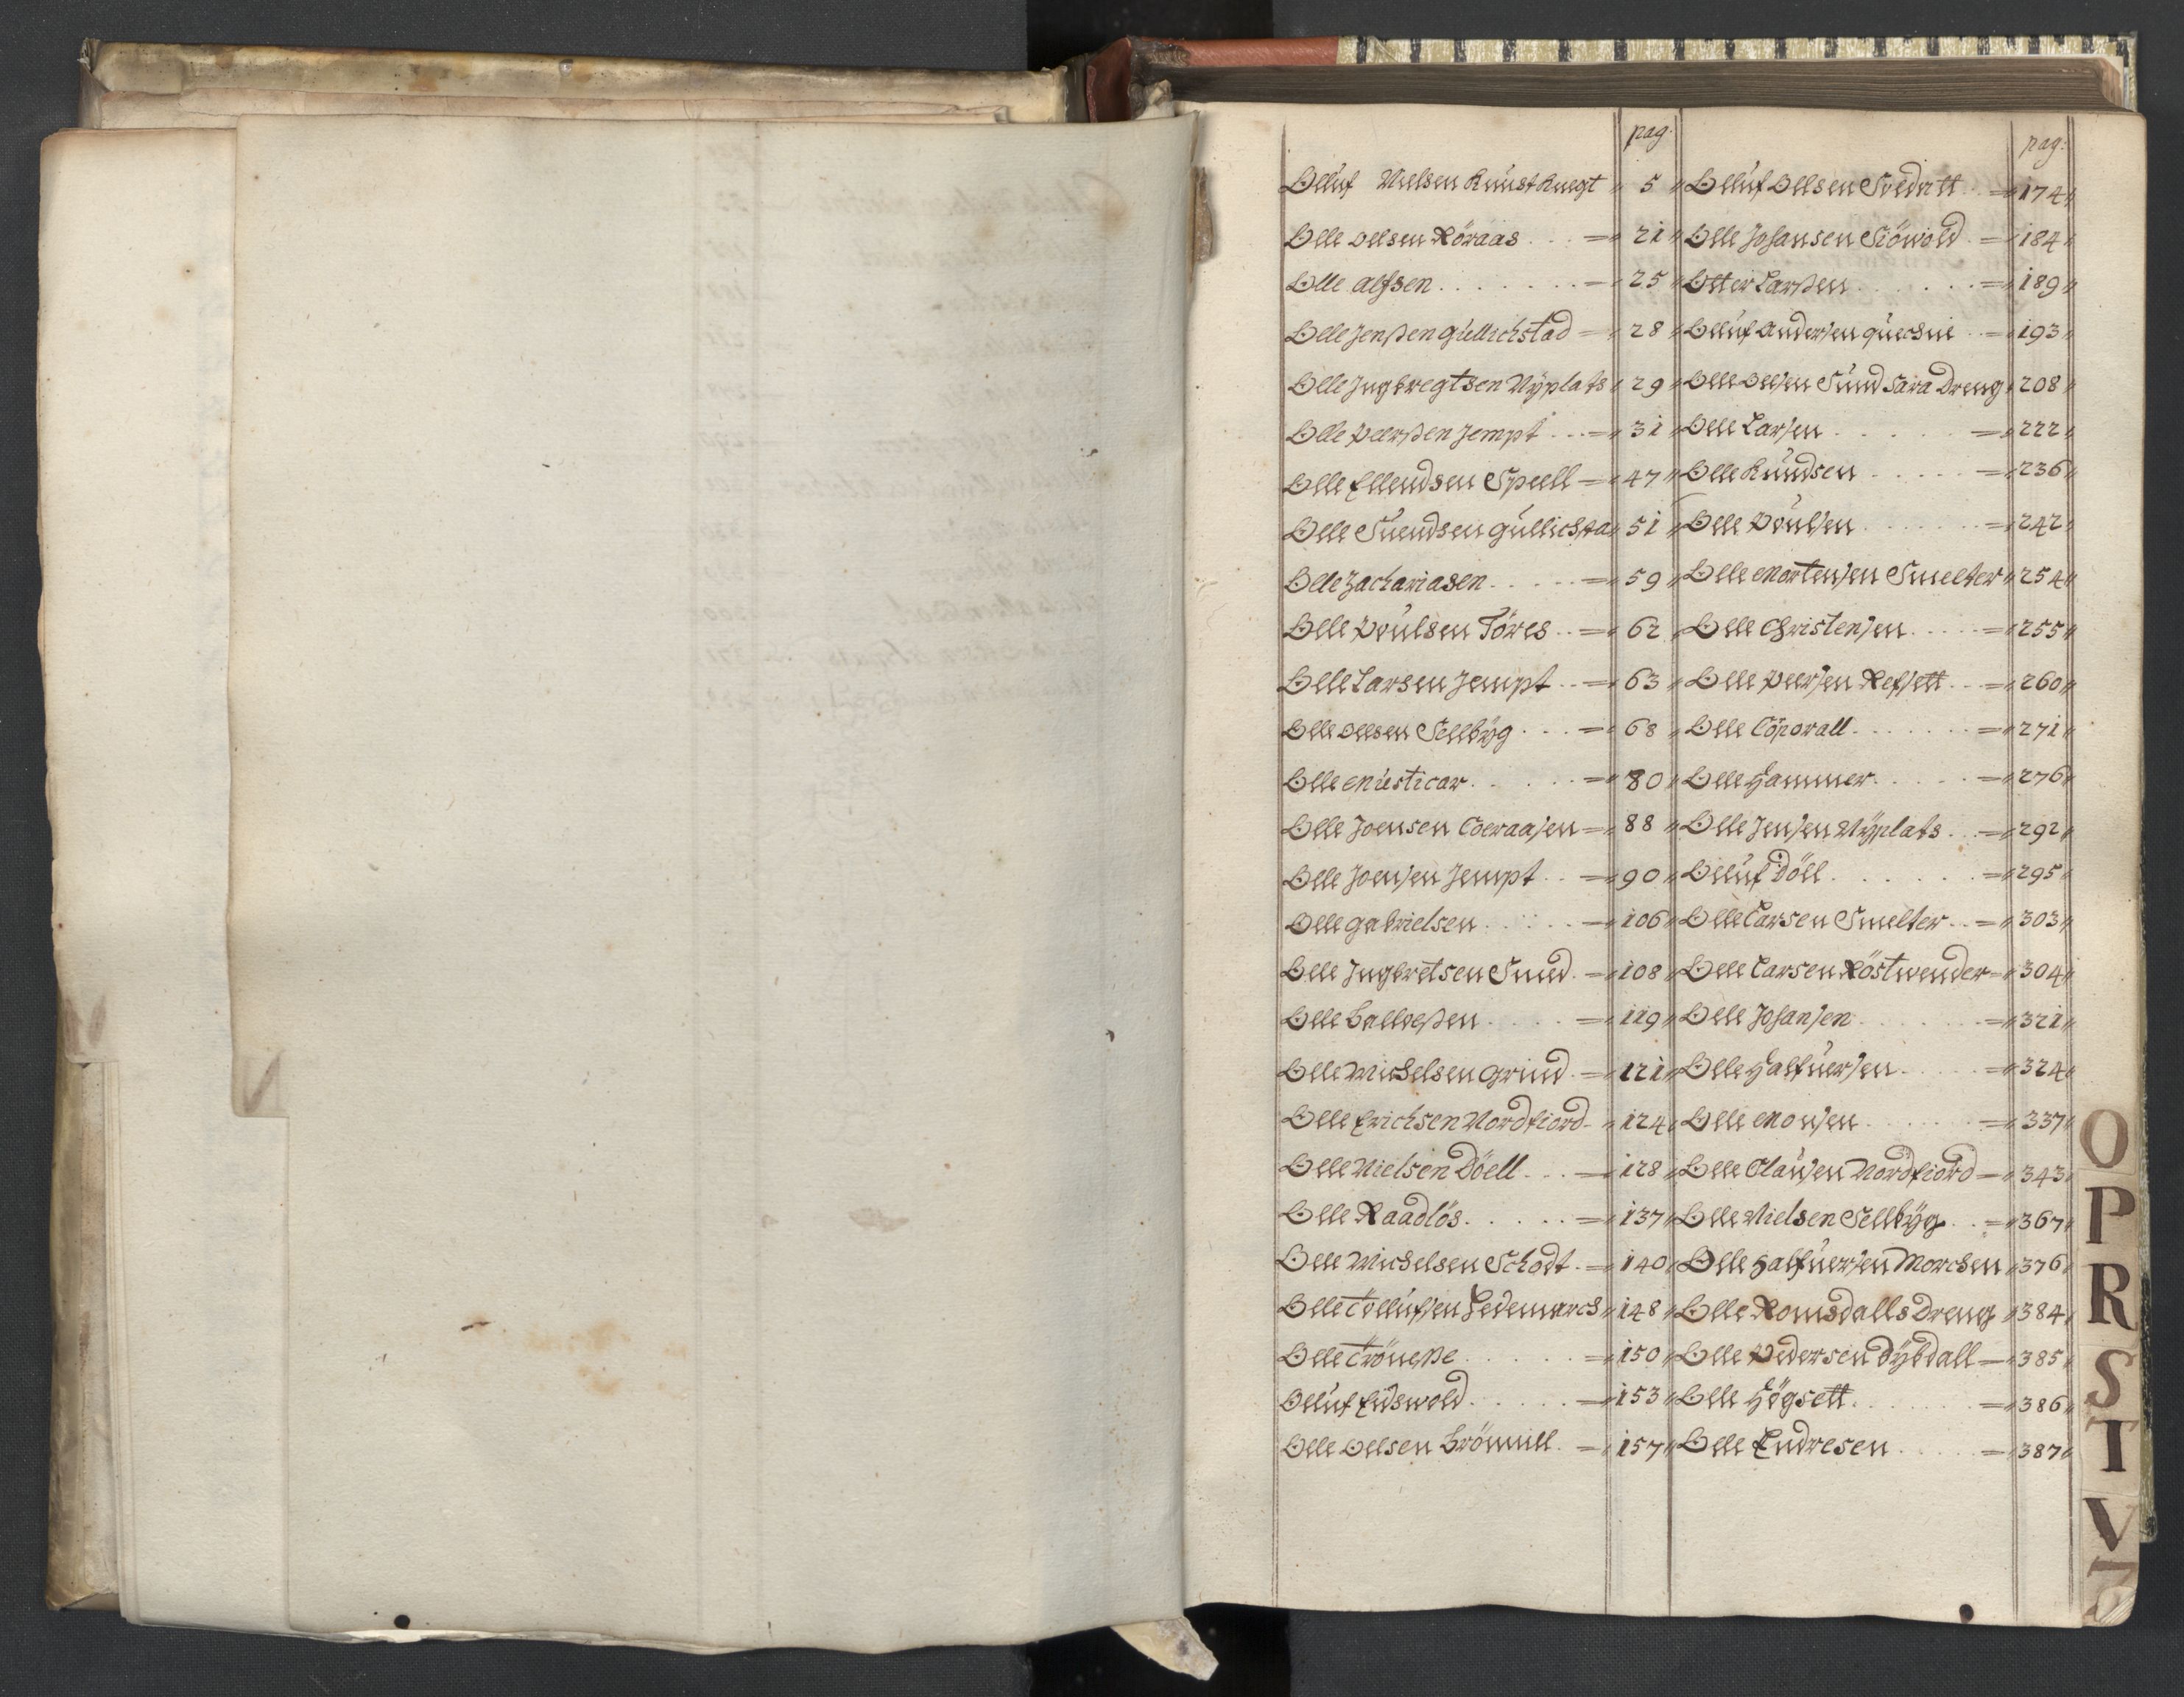 pag.
Olluf Nielsen Kunst Knegt 5
Olle Oelsen Röraas 21
Olle alfsen 25
Olle Jenßen gullichstad 28
Olle Jngbregtsen Nÿplats 29
Olle Peerßen Jempt 31
Olle Ellendsen Speell 47
Olle Suendsen gullichsta 51
Olle Zachariasen 59
Olle Poulsen Töres 62
Olle Larsen Jempt 63
Olle Oelsen Sellbÿg 68
Olle Musticar 80
Olle Joensen Coeraasen 88
Olle Joensen Jempt 90
Olle gabrielsen 106
Olle Jngbretsen Smed 108
Olle Halloeßen 119
Olle Michelsen Grind 121
Olle Erichsen Nordfiord 124
Olle Nielsen Döell 128
Olle Raadlös 137
Olle Michelsen Schodt 140
Olle Tollufsen Hedemarch 148
Olle Tröneße 150
Olluf Eidswold 153
Olle Oelsen Brömill 157
pag:
Olluf Ollsen 174
Olle Johansen Siöwold 184
Otter Larßen 189
Olluf Andersen 193
Olle Oelsen Sund Sara Dreng 208
Olle Larsen 222
Olle Knudsen 236
Olle Poulsen 242
Olle Mortensen Smelter 254
Olle Christensen 255
Olle Peersen Refsett 260
Olle Coporall 271
Olle Hammer 276
Olle Jensen Nÿplats 292
Olluf Döll 295
Olle Larsen Smelter 303
Olle Larsen Röstwender 304
Olle Johansen 321
Olle Halfuersen 324
Olle Monsen 337
Olle Clausen Nordfiord 343
Olle Nielsen Sellbÿg 367
Olle Halfuersen Morchen 376
Olle Romsdalls Dreng 384
Olle Pedersen Dÿbdall 385
Olle Högsett 386
Olle Endresen 387
O
P
R
S
T
V